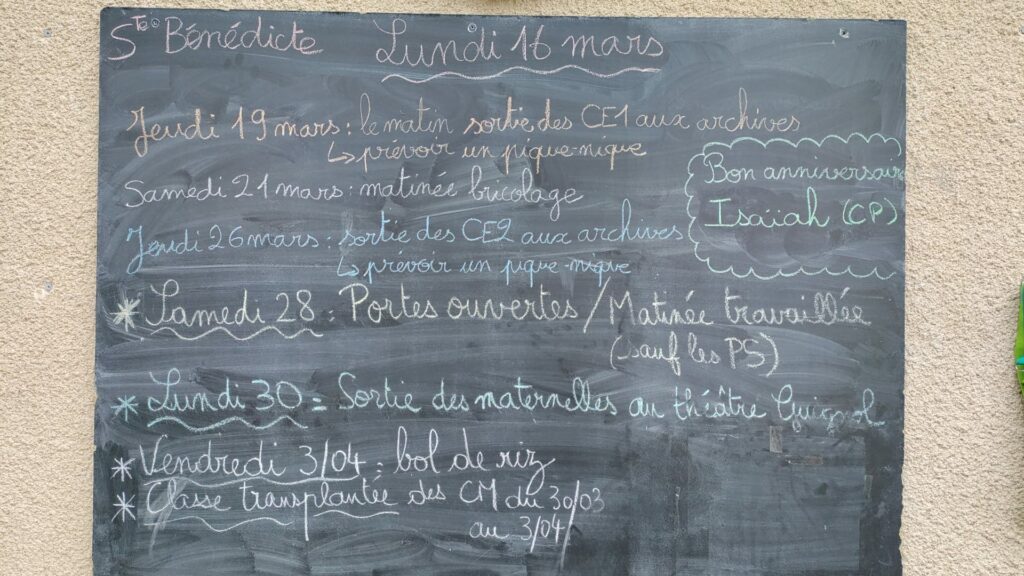 Ste Bénédicte Lundi 16 mars
Jeudi 19 mars : le matin sortie des CE1 aux archives
↳ prévoir un pique-nique
Samedi 21 mars : matinée bricolage
Jeudi 26 mars : sortie des CE2 aux archives
↳ prévoir un pique-nique
Bon anniversaire
Isaïah (CP)
* Samedi 28 : Portes ouvertes / Matinée travaillée
(sauf les PS)
* Lundi 30 = Sortie des maternelles au théâtre Guignol
* Vendredi 3/04 : bol de riz
* Classe transplantée des CM du 30/03
au 3/04/